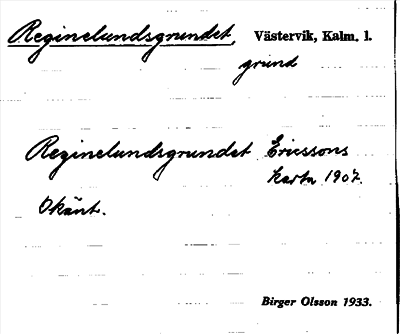 Reginelundsgrundet, Västervik, Kalm. l.
grund
Reginelundsgrundet Ericssons
karta 1907.
Okänt.
Birger Olsson 1933.